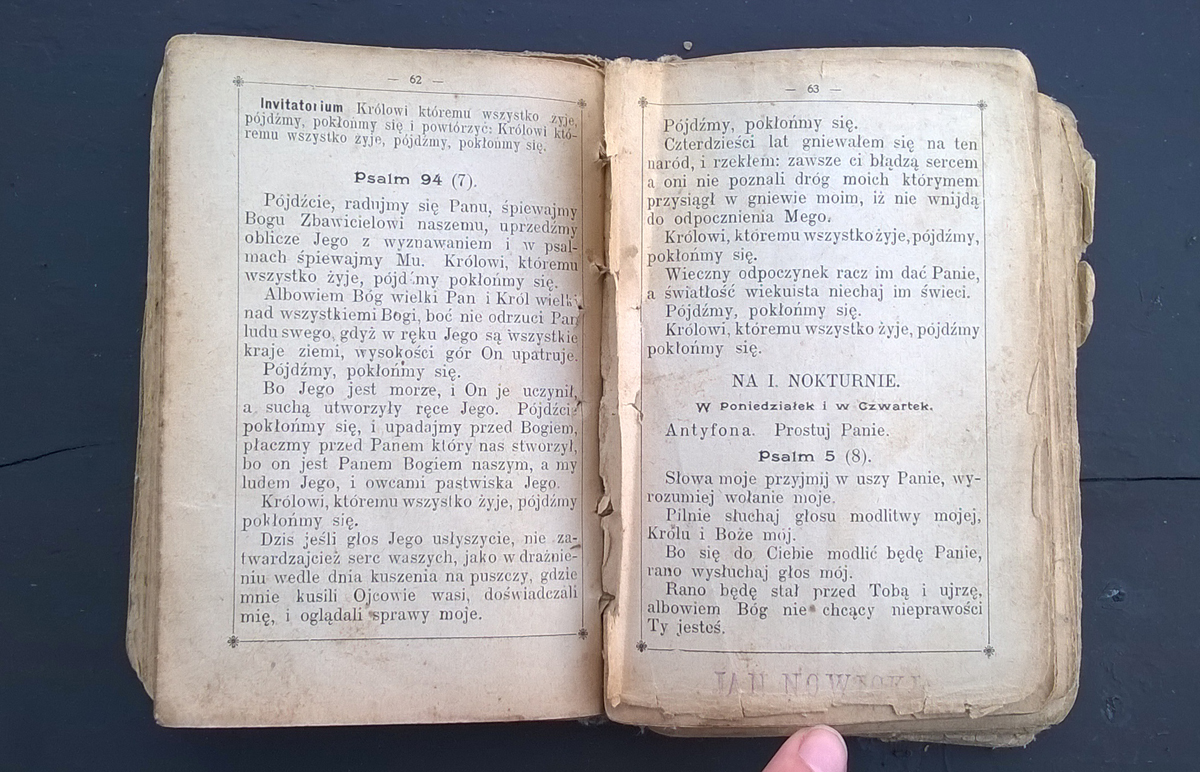 — 62 —
Invitatorium Królowi któremu wszystko żyje,
pójdźmy, pokłońmy się i powtórzyć: Królowi któ-
remu wszystko żyje, pójdźmy, pokłońmy się.
Psalm 94 (7).
Pójdźcie, radujmy się Panu, śpiewajmy
Bogu Zbawicielowi naszemu, uprzedźmy
oblicze Jego z wyznawaniem i w psal-
mach śpiewajmy Mu. Królowi, któremu
wszystko żyje, pójdźmy pokłońmy się.
Albowiem Bóg wielki Pan i Król wielki
nad wszystkiemi Bogi, boć nie odrzuci Pan
ludu swego, gdyż w ręku Jego są wszystkie
kraje ziemi, wysokości gór On upatruje.
Pójdźmy, pokłońmy się.
Bo Jego jest morze, i On je uczynił,
a suchą utworzyły ręce Jego. Pójdźcie
pokłońmy się, i upadajmy przed Bogiem,
płaczmy przed Panem który nas stworzył,
bo on jest Panem Bogiem naszym, a my
ludem Jego, i owcami pastwiska Jego.
Królowi, któremu wszystko żyje, pójdźmy
pokłońmy się.
Dzis jeśli głos Jego usłyszycie, nie za-
twardzajcież serc waszych, jako w drażnie-
niu wedle dnia kuszenia na puszczy, gdzie
mnie kusili Ojcowie wasi, doświadczali
mię, i oglądali sprawy moje.
— 63 —
Pójdźmy, pokłońmy się.
Czterdzieści lat gniewałem się na ten
naród, i rzekłem: zawsze ci błądzą sercem
a oni nie poznali dróg moich którymem
przysiągł w gniewie moim, iż nie wnijdą
do odpocznienia Mego.
Królowi, któremu wszystko żyje, pójdźmy,
pokłońmy się.
Wieczny odpoczynek racz im dać Panie,
a światłość wiekuista niechaj im świeci.
Pójdźmy, pokłońmy się.
Królowi, któremu wszystko żyje, pójdźmy
pokłońmy się.
NA I. NOKTURNIE.
W Poniedziałek i w Czwartek.
Antyfona. Prostuj Panie.
Psalm 5 (8).
Słowa moje przyjmij w uszy Panie, wy-
rozumiej wołanie moje.
Pilnie słuchaj głosu modlitwy mojej,
Królu i Boże mój.
Bo się do Ciebie modlić będę Panie,
rano wysłuchaj głos mój.
Rano będę stał przed Tobą i ujrzę,
albowiem Bóg nie chcący nieprawości
Ty jesteś.
JAN NOWICKI